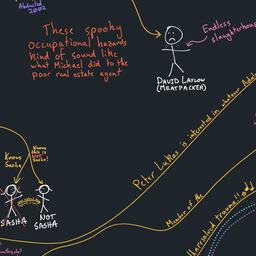 Abducted
2002
These spooky
occupational hazards
kind of sound like
what Michael did to the
poor real estate agent
Endless
slaughterhouse
DAVID LAYLOW
(MEATPACKER)
Knows
Sasha
Knows
this is
NOT
Sasha!
SASHA
NOT
SASHA
Peter Lukas is interested in whatever
Member of the
Unresolved trauma!